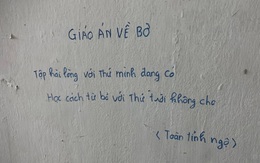 GIÁO ÁN VỀ BỜ
Tập hài lòng với Thứ mình đang có
Học cách từ bỏ với Thứ trời không cho
( Toàn tỉnh ngộ )